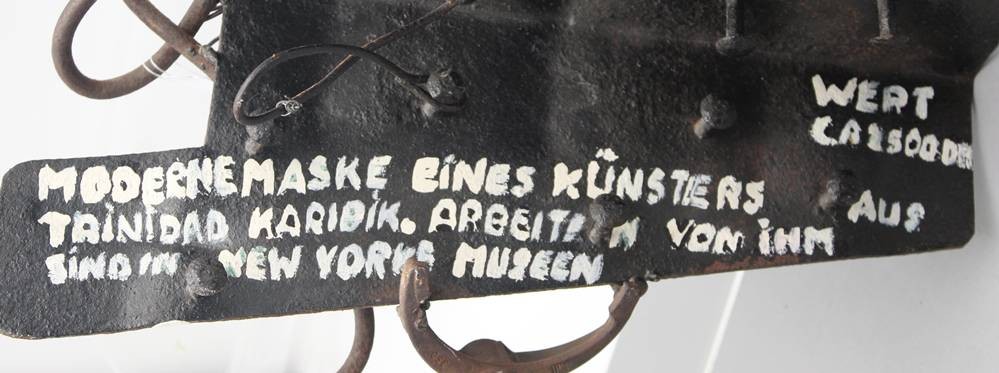 MODERNE MASKE EINES KÜNSTLERS AUS
TRINIDAD KARIBIK. ARBEITEN VON IHM
SIND IN NEW YORKS MUSEEN
WERT
CA 2500 DEM